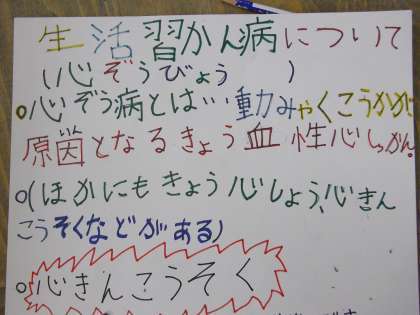 生活習かん病について
(心ぞうびょう )
○心ぞう病とは…動みゃくこうかが
原茵となるきょう血性心しっかん
○(ほかにもきょう心しょう、心きん
こうそくなどがある)
○心きんこうそく